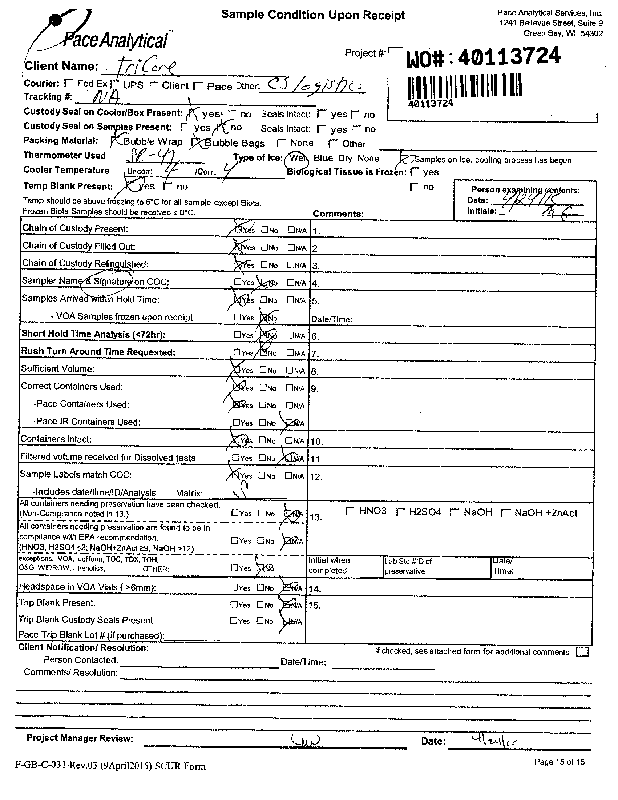 Sample Condition Upon Receipt
Pace Analytical Services, Inc.
1241 Bellevue Street, Suite 9
Green Bay, WI 54302
Pace Analytical
Project #:
WO#: 40113724
40113724
Client Name: TriCore
Courier: Fed Ex UPS Client Pace Other: CS Logistics
Tracking #: N/A
Custody Seal on Cooler/Box Present: yes no Seals Intact: yes no
Custody Seal on Samples Present: yes no Seals Intact: yes no
Packing Material: Bubble Wrap Bubble Bags None Other
Thermometer Used Type of Ice: Wet Blue Dry None Samples on ice, cooling process has begun
Cooler Temperature Uncorr: 4 /Corr: 4 Biological Tissue is Frozen: yes
Temp Blank Present: Yes no no
Temp should be above freezing to 6°C for all sample except Biota.
Frozen Biota Samples should be received ≤ 0°C.
Person examining contents:
Date: 4/24/15
Initials:
Comments:
Chain of Custody Present: Yes No N/A 1.
Chain of Custody Filled Out: Yes No N/A 2.
Chain of Custody Relinquished: Yes No N/A 3.
Sampler Name & Signature on COC: Yes No N/A 4.
Samples Arrived within Hold Time: Yes No N/A 5.
- VOA Samples frozen upon receipt Yes No Date/Time:
Short Hold Time Analysis (<72hr): Yes No N/A 6.
Rush Turn Around Time Requested: Yes No N/A 7.
Sufficient Volume: Yes No N/A 8.
Correct Containers Used: Yes No N/A 9.
-Pace Containers Used: Yes No N/A
-Pace IR Containers Used: Yes No N/A
Containers Intact: Yes No N/A 10.
Filtered volume received for Dissolved tests Yes No N/A 11.
Sample Labels match COC: Yes No N/A 12.
-Includes date/time/ID/Analysis Matrix: W
All containers needing preservation have been checked.
(Non-Compliance noted in 13.) Yes No N/A 13. HNO3 H2SO4 NaOH NaOH +ZnAct
All containers needing preservation are found to be in
compliance with EPA recommendation.
(HNO3, H2SO4 ≤2; NaOH+ZnAct ≥9, NaOH ≥12) Yes No N/A
exceptions: VOA, coliform, TOC, TOX, TOH,
O&G, WIDROW, Phenolics, OTHER: Yes No
Initial when
completed
Lab Std #/ID of
preservative
Date/
Time:
Headspace in VOA Vials ( >6mm): Yes No N/A 14.
Trip Blank Present: Yes No N/A 15.
Trip Blank Custody Seals Present Yes No N/A
Pace Trip Blank Lot # (if purchased):
Client Notification/ Resolution:
If checked, see attached form for additional comments
Person Contacted: Date/Time:
Comments/ Resolution:
Project Manager Review: Date:
F-GB-C-031-Rev.03 (9April2015) SCUR Form
Page 15 of 15